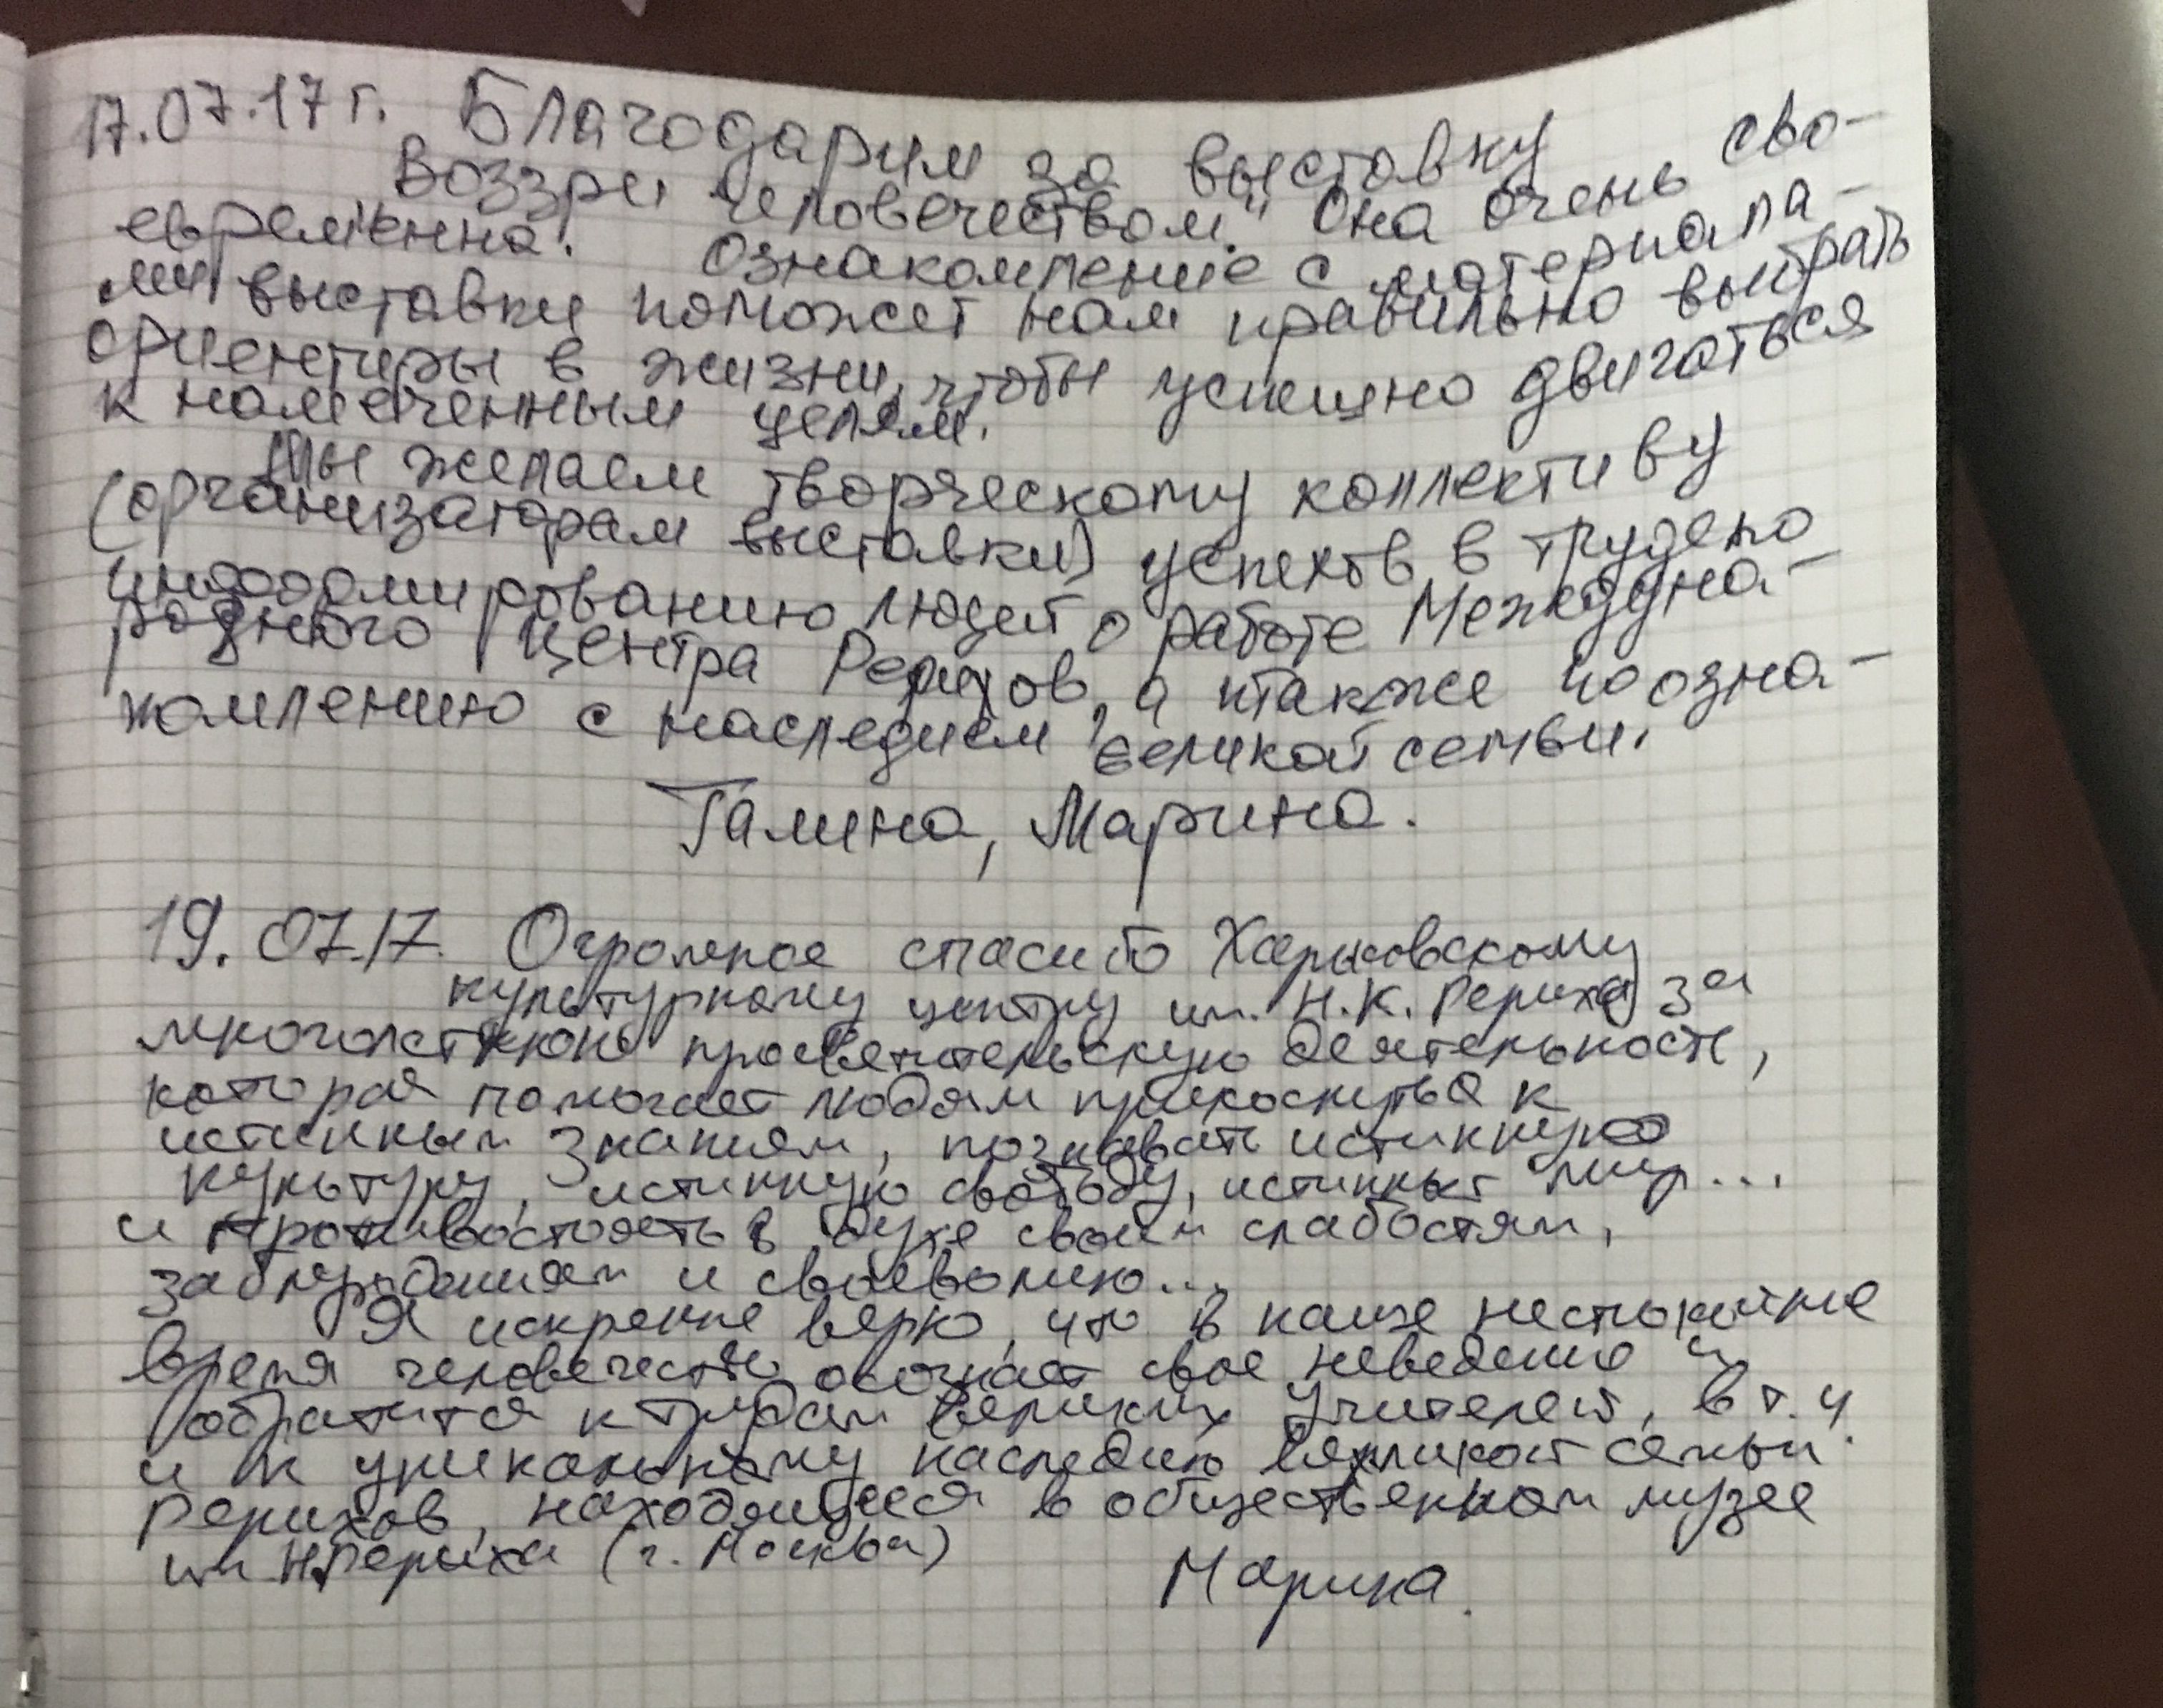 17.07.17 г. Благодарим за выставку
Воззри человечеством." Она очень сво-
евременна. Ознакомление с материала-
ми выставки поможет нам правильно выбрать
ориентиры в жизни, чтобы успешно двигаться
к намеченным целям.
Мы желаем творческому коллективу
(организаторам выставки) успехов в трудепо
информированию людей о работе Междуна-
родного Центра Рерихов, а также по озна-
комлению с наследием великой семьи.
Галина, Марина.
19.07.17. Огромное спасибо Харьковскому
культурному центру им. Н.К. Рериха за
многолетнюю просветительскую деятельность,
которая помогает людям прикоснуться к
истинным знаниям, познавать истинную
культуру, истинную свободу, истинный мир...
и противостоять в духе своим слабостям,
заблуждениям и своеволию...
Я искренне верю, что в наше неспокойное
время человечество осознает свое неведение и
обратится к трудам Великих Учителей, в т.ч.
и к уникальному наследию великой семьи
Рерихов, находящееся в общественном музее
им Н.Рериха (г. Москва)
Марина.